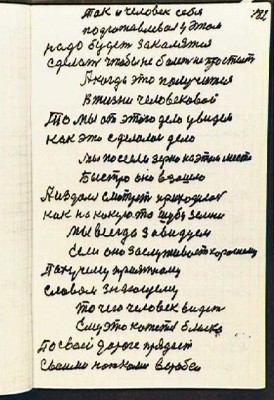 Так и человек себя
подготавливал у этом
надо будет заняться
сделать чтобы не болеть и простыть
А когда это получится
В жизни человековой
То мы от этого дело увидем
как это сделалось дело
Мы посеяли зерно на этом месте
Быстро оно взошло
А издали смотрят приходилось
как на какую то шубу земли
Мы всегда завидуем
Если оно заслуживает хорошему
Такучему приятному
словам знающему
То чего человек видет
Ему это хотется близко
По своей дороге
Своими ногами